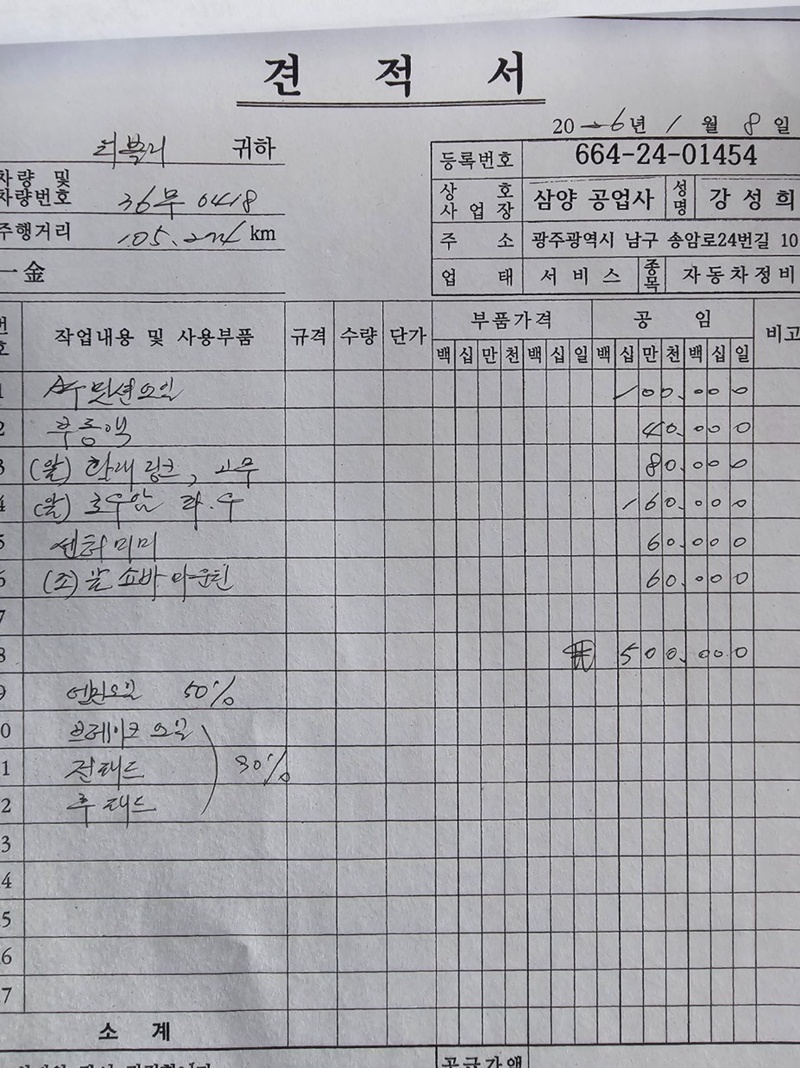 견 적 서
20 26년 1 월 8 일
귀하
등록번호 664-24-01454
차량 및
차량번호 36무 0418
상 호
사 업 장 삼양 공업사 성명 강 성 희
주행거리 105. km
주 소 광주광역시 남구 송암로24번길 10
一金
업 태 서 비 스 종목 자동차정비
번호 작업내용 및 사용부품 규격 수량 단가 부품가격 공 임 비고
백 십 만 천 백 십 일 백 십 만 천 백 십 일
1 밋션오일 100.000
2 부동액 40.000
3 (앞) 활대링크, 고무 80.000
4 (앞) 로우암 좌.우 160.000
5 미미 60.000
6 (조) 앞 쇼바 마운틴 60.000
7
8 ₩ 500.000
9 엔진오일 50%
0 브레이크 오일
1 전패드 30%
2 후패드
3
4
5
6
7
소 계
공급가액